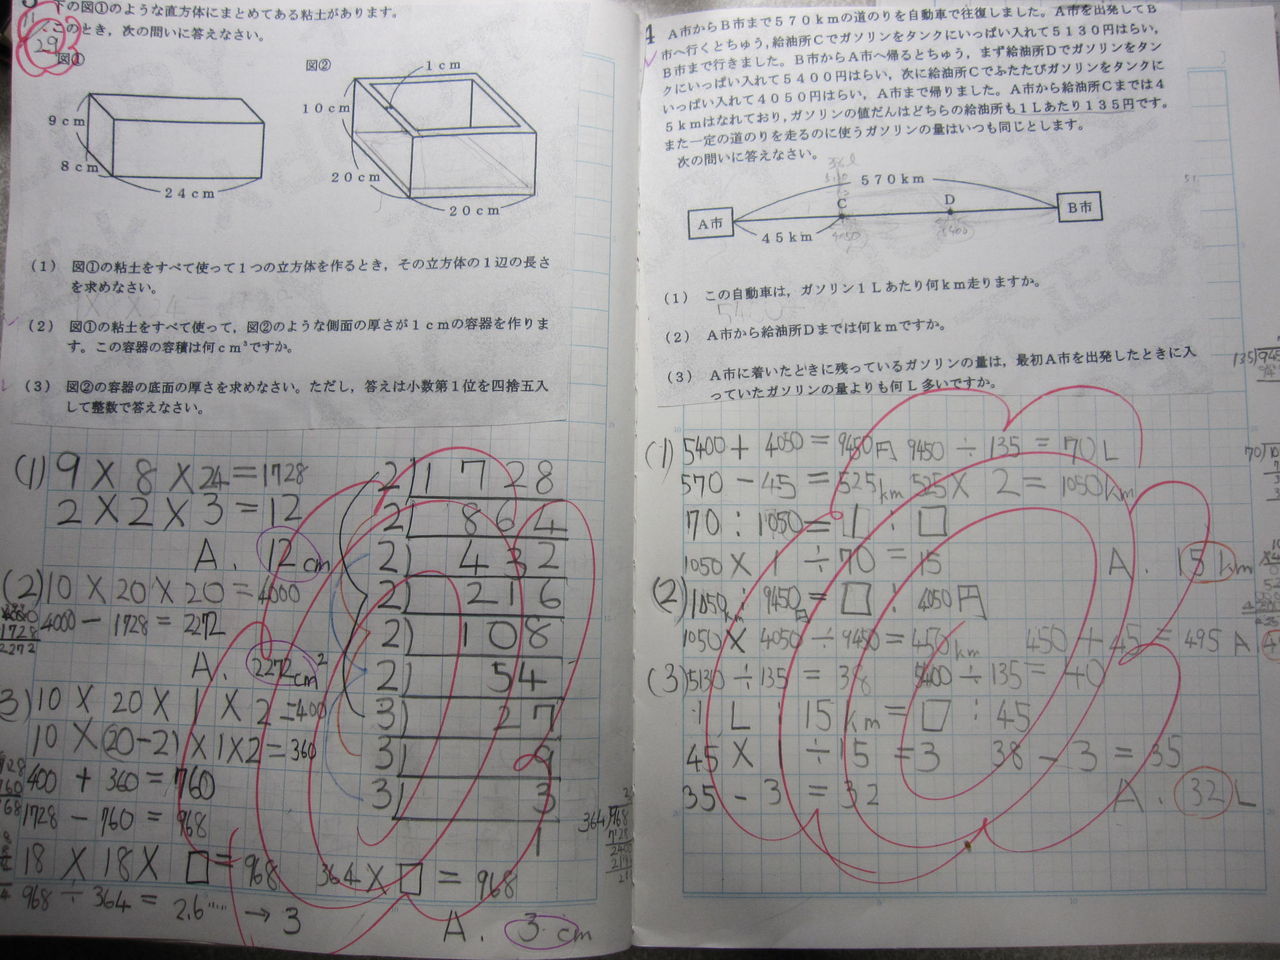 下の図①のような直方体にまとめてある粘土があります。
このとき，次の問いに答えなさい。
29
図①
図②
9cm
8cm
24cm
1cm
10cm
20cm
20cm
(1) 図①の粘土をすべて使って1つの立方体を作るとき，その立方体の1辺の長さ
を求めなさい。
(2) 図①の粘土をすべて使って，図②のような側面の厚さが1cmの容器を作りま
す。この容器の容積は何cm³ですか。
(3) 図②の容器の底面の厚さを求めなさい。ただし，答えは小数第1位を四捨五入
して整数で答えなさい。
(1) 9×8×24=1728
2×2×3=12
A. 12cm
(2) 10×20×20=4000
4000-1728=2272
A. 2272cm²
3) 10×20×1×2=400
10×(20-2)×1×2=360
400+360=760
1728-760=968
18×18×□=968 364×□=968
968÷364=2.6……→3
A. 3cm
2)1728
2)864
2)432
2)216
2)108
2)54
3)27
3)9
3)3
1
4 A市からB市まで570kmの道のりを自動車で往復しました。A市を出発してB
市へ行くとちゅう，給油所Cでガソリンをタンクにいっぱい入れて5130円はらい，
B市まで行きました。B市からA市へ帰るとちゅう，まず給油所Dでガソリンをタン
クにいっぱい入れて5400円はらい，次に給油所Cでふたたびガソリンをタンクに
いっぱい入れて4050円はらい，A市まで帰りました。A市から給油所Cまでは4
5kmはなれており，ガソリンの値だんはどちらの給油所も1Lあたり135円です。
また一定の道のりを走るのに使うガソリンの量はいつも同じとします。
次の問いに答えなさい。
570km
A市
C
D
B市
45km
(1) この自動車は，ガソリン1Lあたり何km走りますか。
(2) A市から給油所Dまでは何kmですか。
(3) A市に着いたときに残っているガソリンの量は，最初A市を出発したときに入
っていたガソリンの量よりも何L多いですか。
(1) 5400+4050=9450円 9450÷135=70L
570-45=525km 525×2=1050km
70:1050=1:□
1050×1÷70=15 A. 15km
(2) 1050km:9450円=□:4050円
1050×4050÷9450=450km 450+45=495 A
(3) 5130÷135=38 5400÷135=40
1L:15km=□:45
45× ÷15=3 38-3=35
35-3=32 A. 32L